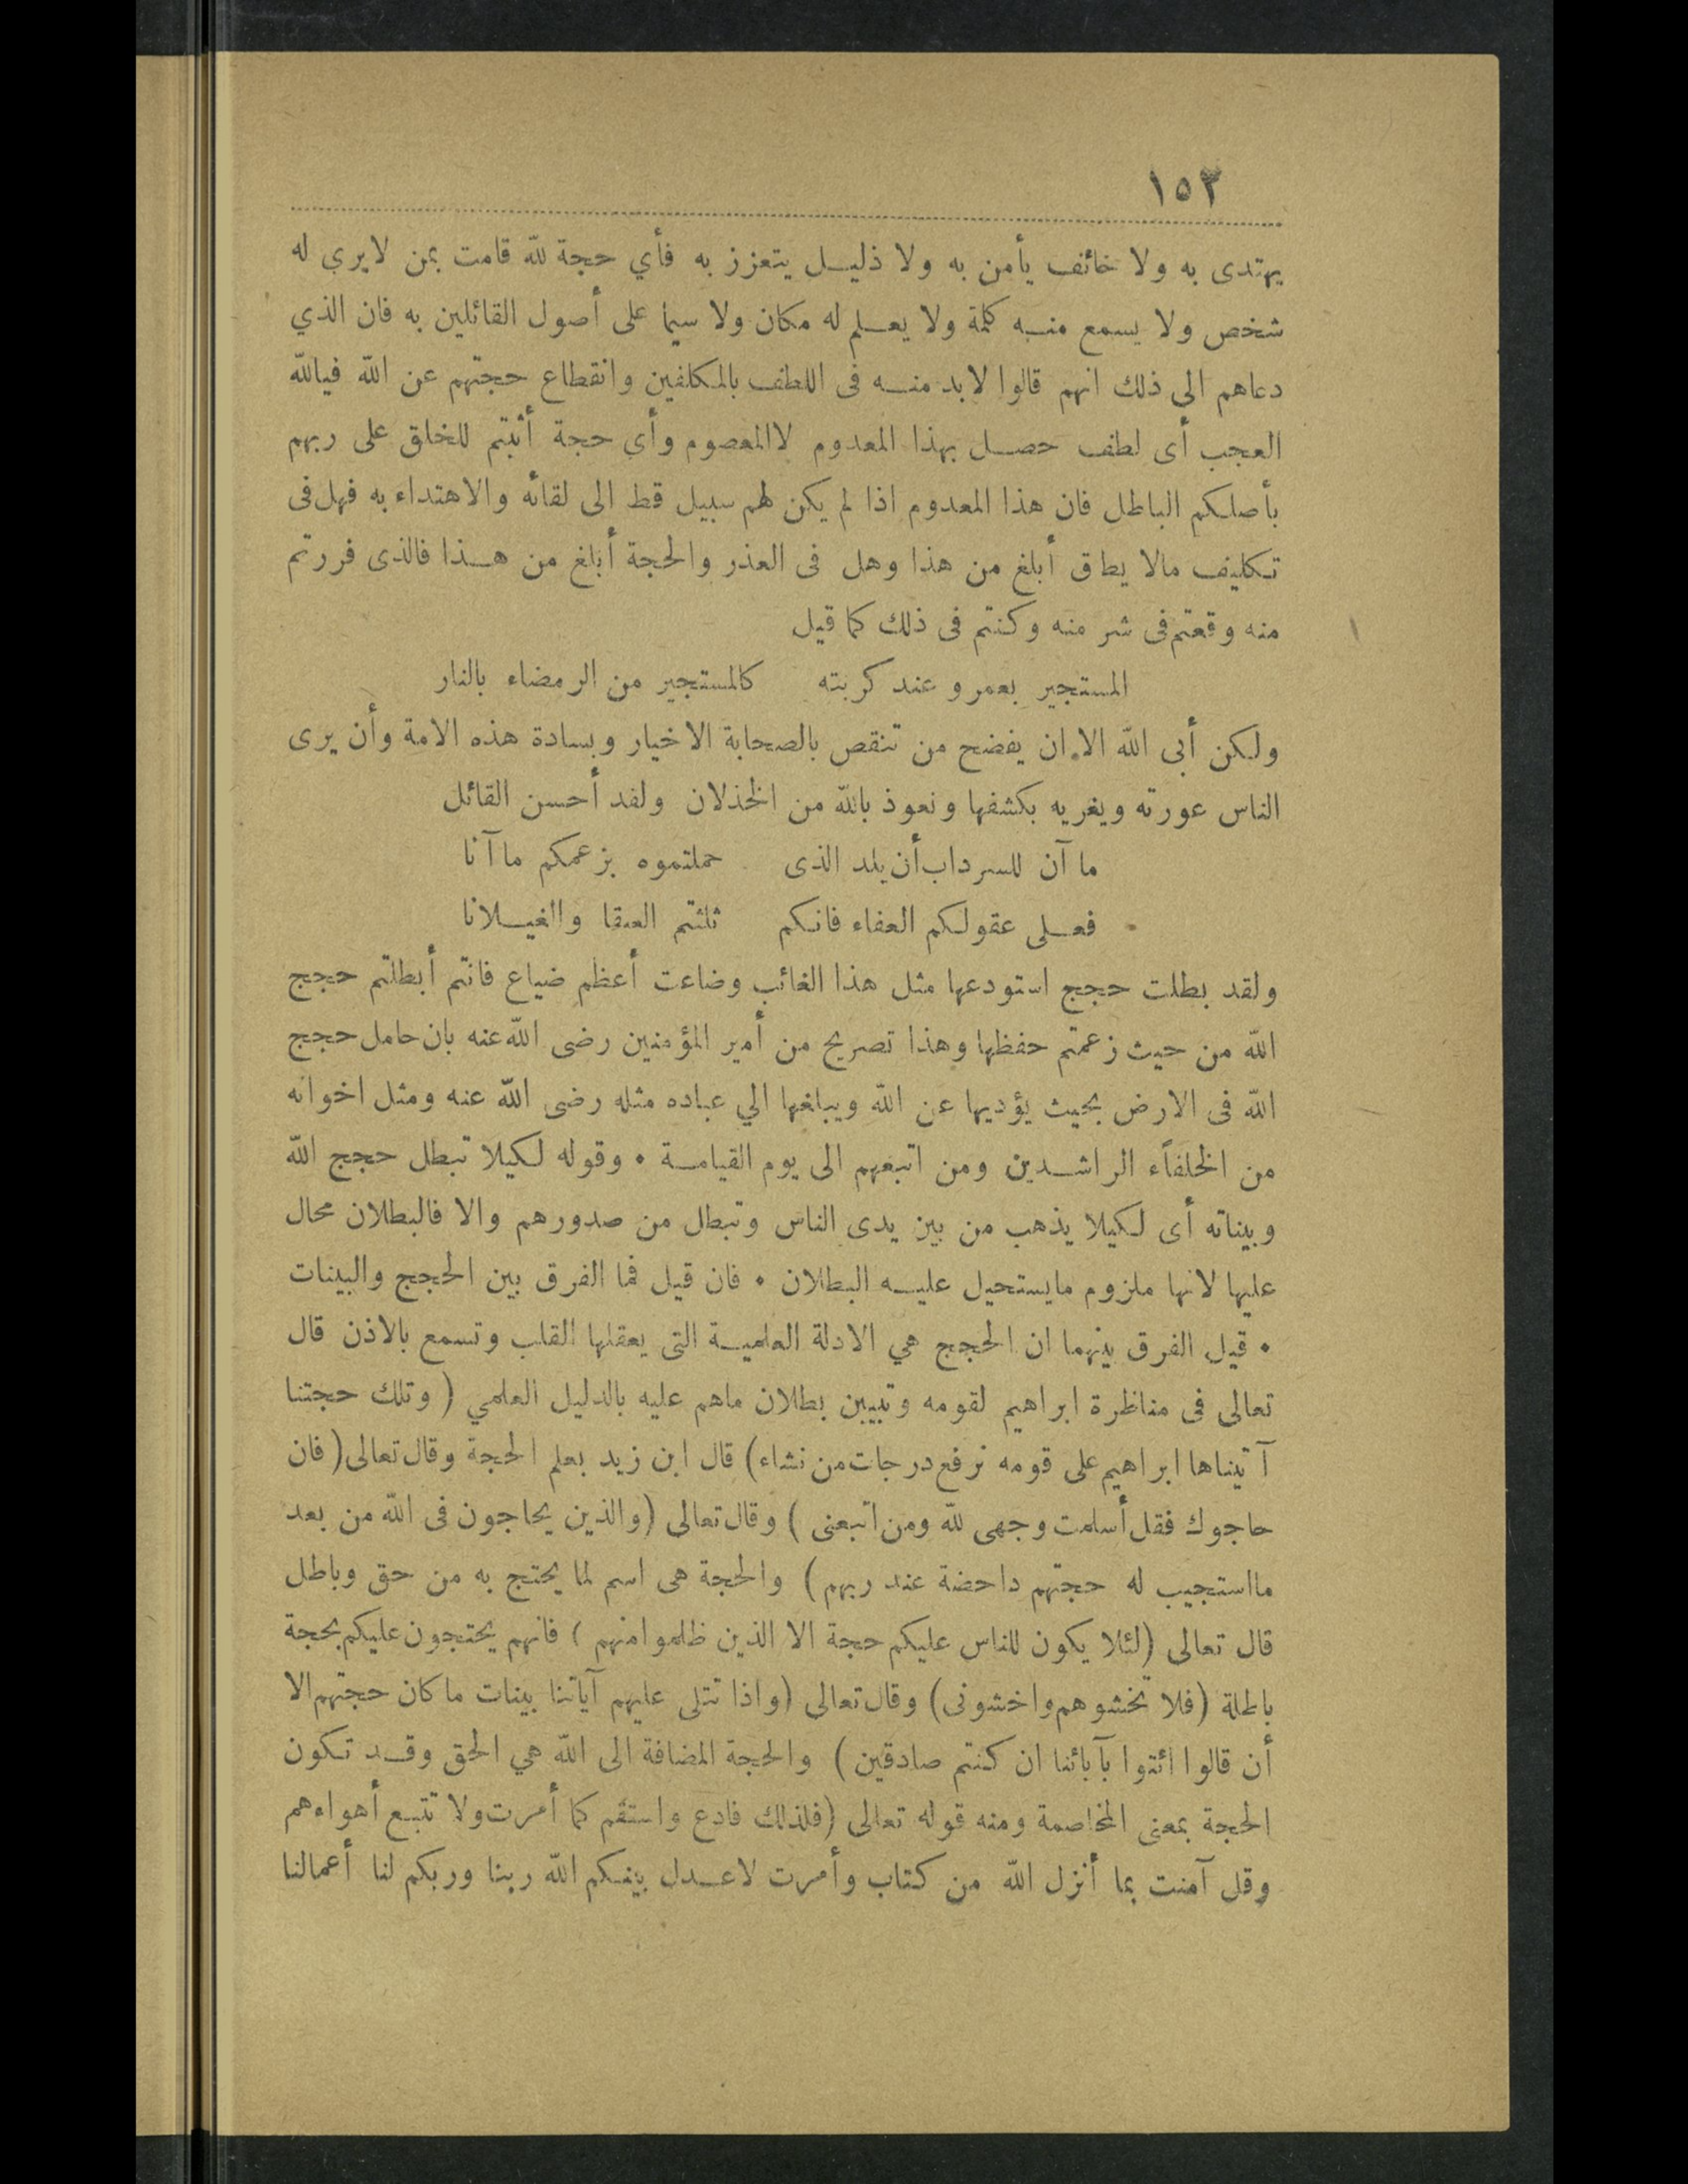 ١٥٣
يهتدى به ولا خائف يأمن به ولا ذليل يتعزز به فأي حجة لله قامت بمن لايري له
شخص ولا يسمع منه كلمة ولا يعلم له مكان ولا سيما على أصول القائلين به فان الذي
دعاهم الى ذلك انهم قالوا لابد منه فى اللطف بالمكلفين وانقطاع حجتهم عن الله فيالله
العجب أى لطف حصل بهذا المعدوم لاالمعصوم وأي حجة أثبتم للخلق على ربهم
بأصلكم الباطل فان هذا المعدوم اذا لم يكن لهم سبيل قط الى لقائه والاهتداء به فهل فى
تكليف مالا يطاق أبلغ من هذا وهل فى العذر والحجة أبلغ من هذا فالذى فررتم
منه وقعتم فى شر منه وكنتم فى ذلك كما قيل
المستجير بعمرو عند كربته كالمستجير من الرمضاء بالنار
ولكن أبى الله الا ان يفضح من تنقص بالصحابة الاخيار وبسادة هذه الامة وأن يرى
الناس عورته ويغريه بكشفها ونعوذ بالله من الخذلان ولقد أحسن القائل
ما آن للسرداب أن يلد الذى حملتموه بزعمكم ما آنا
فعلى عقولكم العفاء فانكم ثلثتم العنقا والغيلانا
ولقد بطلت حجج استودعها مثل هذا الغائب وضاعت أعظم ضياع فانتم أبطلتم حجج
الله من حيث زعمتم حفظها وهذا تصريح من أمير المؤمنين رضى الله عنه بان حامل حجج
الله فى الارض بحيث يؤديها عن الله ويبلغها الي عباده مثله رضى الله عنه ومثل اخوانه
من الخلفاء الراشدين ومن اتبعهم الى يوم القيامة • وقوله لكيلا تبطل حجج الله
وبيناته أى لكيلا يذهب من بين يدى الناس وتبطل من صدورهم والا فالبطلان محال
عليها لانها ملزوم مايستحيل عليه البطلان • فان قيل فما الفرق بين الحجج والبينات
• قيل الفرق بينهما ان الحجج هي الادلة العلمية التى يعقلها القلب وتسمع بالاذن قال
تعالى فى مناظرة ابراهيم لقومه وتبيين بطلان ماهم عليه بالدليل العلمي ( وتلك حجتنا
آتيناها ابراهيم على قومه نرفع درجات من نشاء) قال ابن زيد بعلم الحجة وقال تعالى( فان
حاجوك فقل أسلمت وجهى لله ومن اتبعنى ) وقال تعالى (والذين يحاجون فى الله من بعد
مااستجيب له حجتهم داحضة عند ربهم ) والحجة هى اسم لما يحتج به من حق وباطل
قال تعالى (لئلا يكون للناس عليكم حجة الا الذين ظلموا منهم ) فانهم يحتجون عليكم بحجة
باطلة (فلا تخشوهم واخشونى) وقال تعالى (واذا تتلى عليهم آياتنا بينات ماكان حجتهم الا
أن قالوا ائتوا بآبائنا ان كنتم صادقين ) والحجة المضافة الى الله هي الحق وقد تكون
الحجة بمعنى المخاصمة ومنه قوله تعالى (فلذلك فادع واستقم كما أمرت ولا تتبع أهواءهم
وقل آمنت بما أنزل الله من كتاب وأمرت لاعدل بينكم الله ربنا وربكم لنا أعمالنا